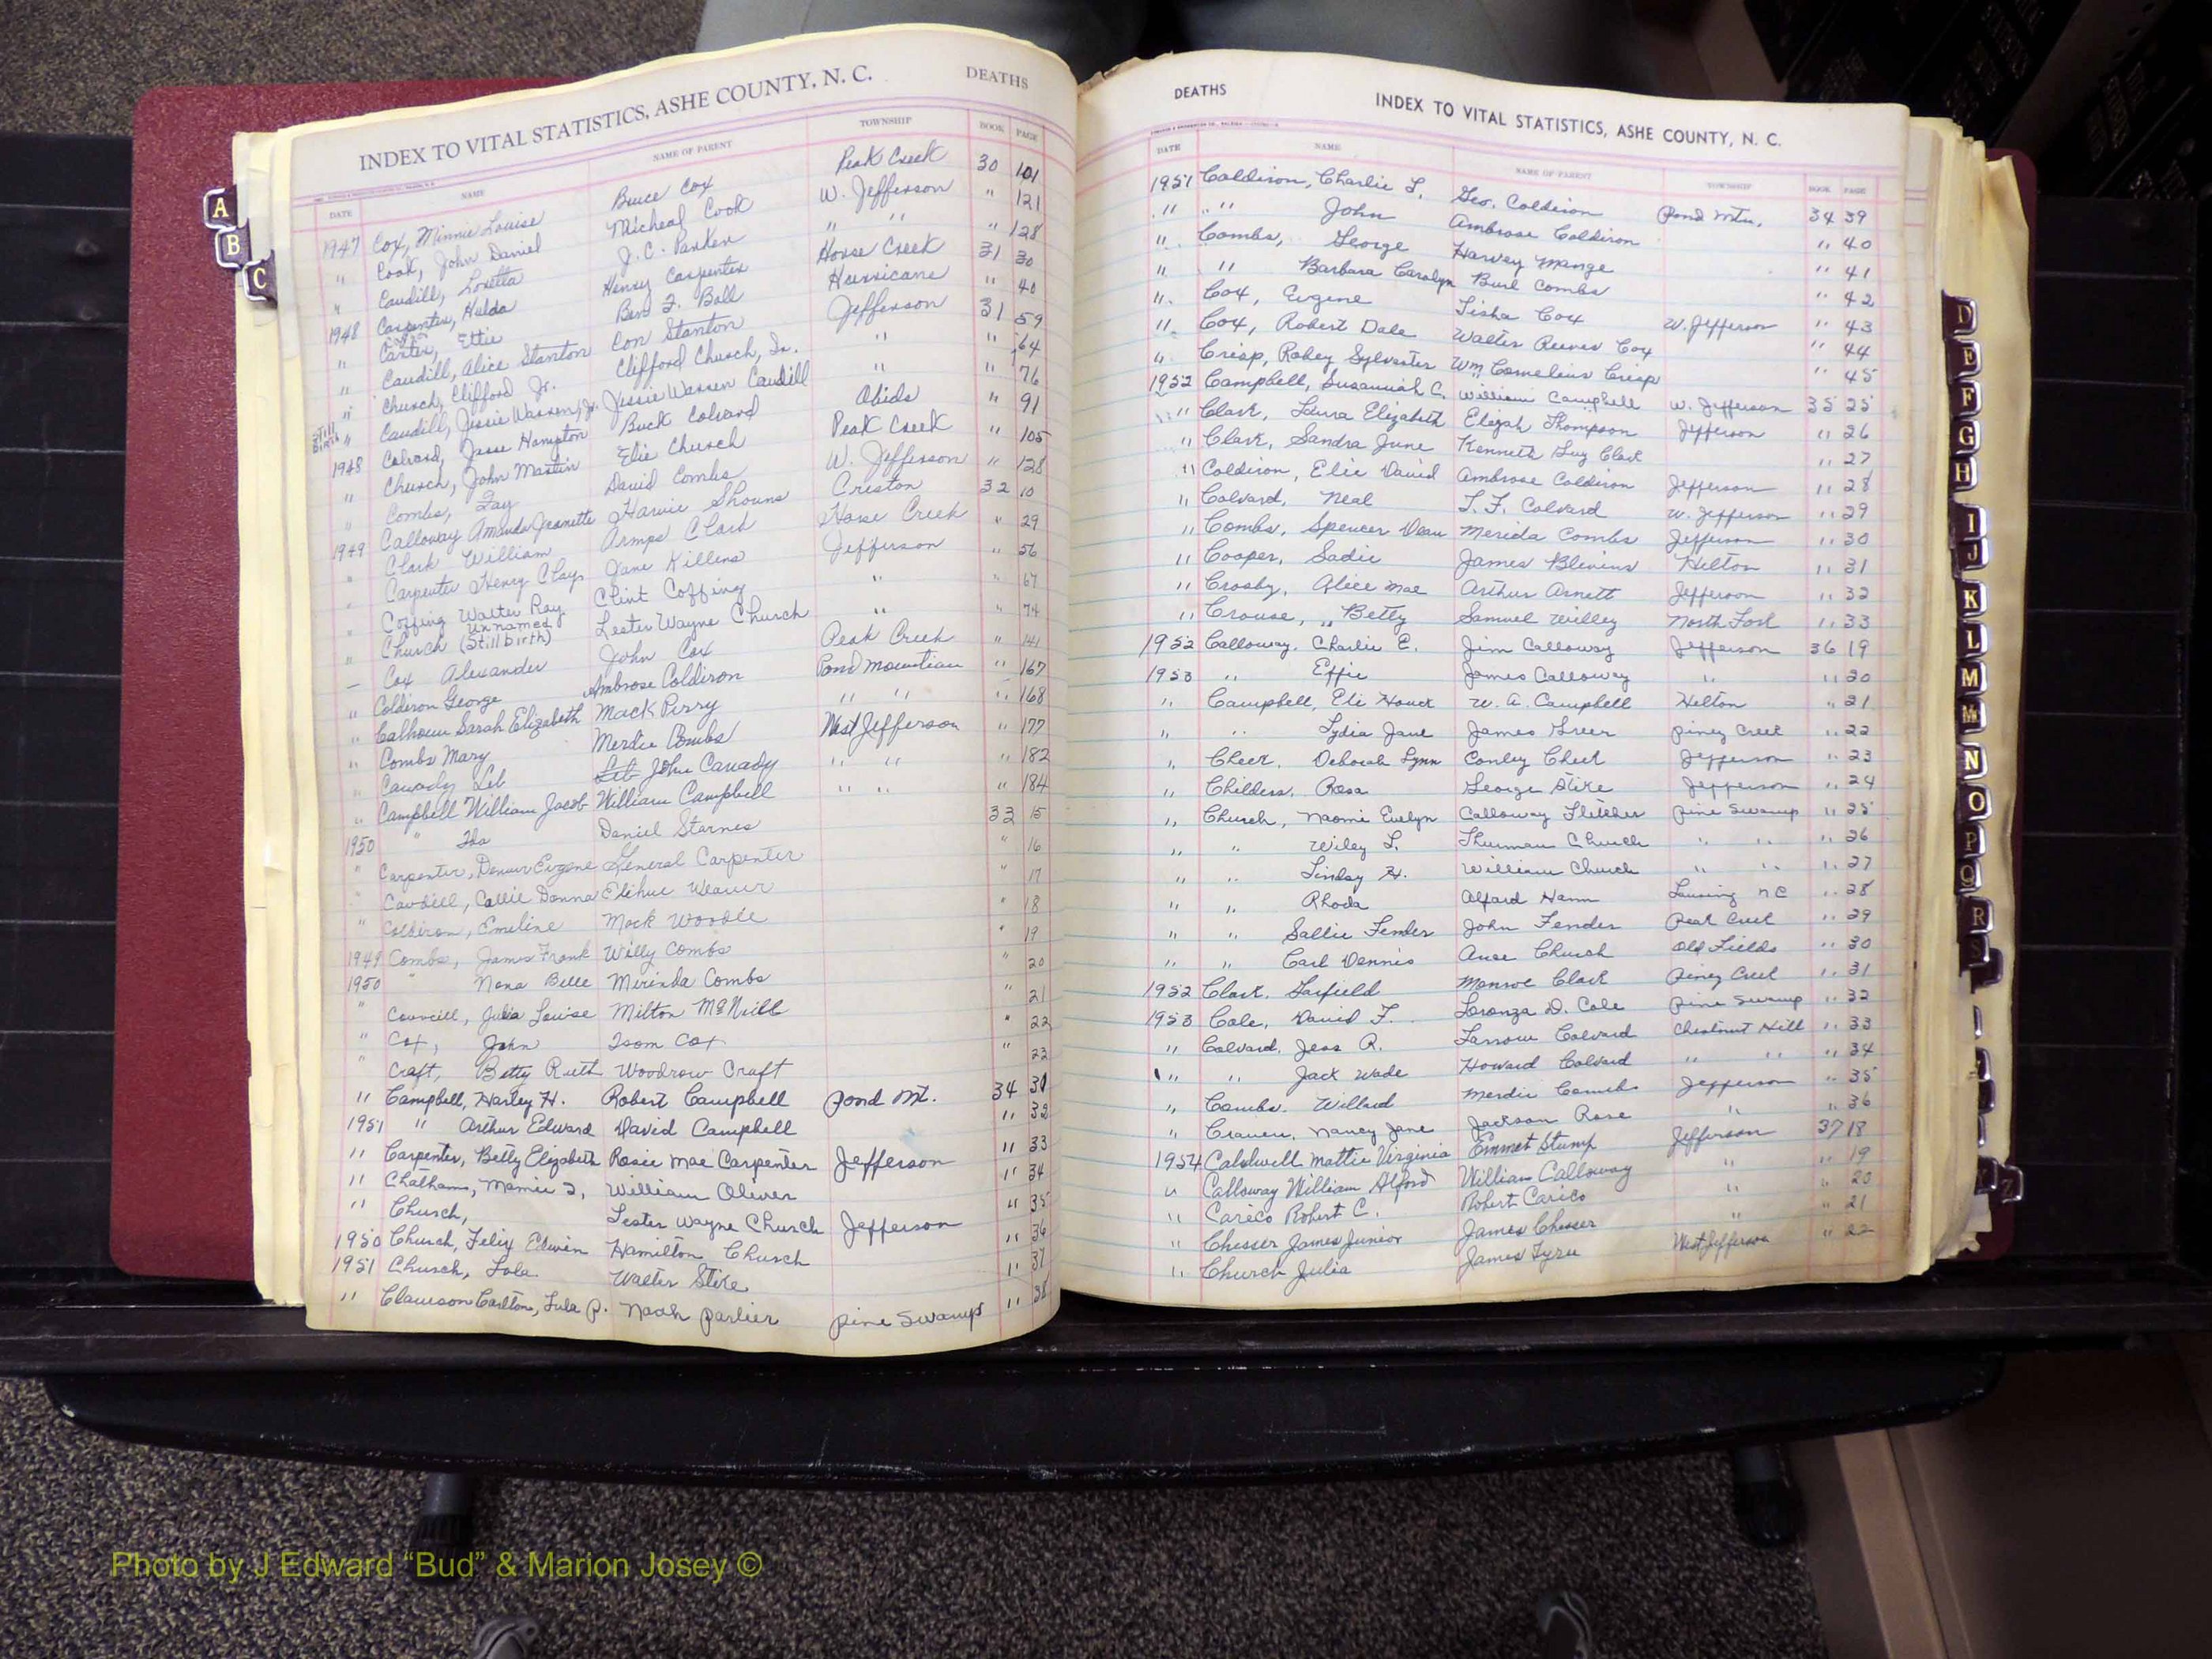 INDEX TO VITAL STATISTICS, ASHE COUNTY, N. C. DEATHS
DATE NAME NAME OF PARENT TOWNSHIP BOOK PAGE
1947 Cox, Minnie Louise Bruce Cox Peak Creek 30 101
" Cook, John Daniel Micheal Cook W. Jefferson " 121
" Caudill, Loretta J. C. Parker " " " 128
1948 Carpenter, Hulda Henry Carpenter Horse Creek 31 30
" Carter, Ettie Ben F. Ball Hurricane " 40
" Caudill, Alice Stanton Con Stanton Jefferson 31 59
" Church, Clifford Jr. Clifford Church, Sr. " " 64
STILL BIRTH " Caudill, Jessie Warren, Jr. Jessie Warren Caudill " " 76
1948 Colvard, Jesse Hampton Buck Colvard Obids " 91
" Church, John Martin Elie Church Peak Creek " 105
" Combs, Fay David Combs W. Jefferson " 128
1949 Calloway Amanda Jeanette Harvie Shouns Creston 32 10
" Clark William Armps Clark Horse Creek " 29
" Carpenter Henry Clay Jane Killens Jefferson " 56
" Coffing Walter Ray Clint Coffing " " 67
" Church unnamed (Stillbirth) Lester Wayne Church " " 74
— Cox Alexander John Cox Peak Creek " 141
" Coldiron George Ambrose Coldiron Pond Mountian " 167
" Calhoun Sarah Elizabeth Mack Pirry " " " 168
" Combs Mary Merdie Combs West Jefferson " 177
" Canady Leb Leb John Canady " " " 182
" Campbell William Jacob William Campbell " " " 184
1950 " Ida Daniel Starnes 33 15
" Carpenter, Denver Eugene General Carpenter " 16
" Caudill, Callie Donna Elihue Weaver " 17
" Coldiron, Emeline Mack Woodie " 18
1949 Combs, James Frank Willy Combs " 19
1950 " Nona Belle Mirinda Combs " 20
" Councill, Julia Louise Milton McNeill " 21
" Cox, John Isom Cox " 22
" Craft, Betty Ruth Woodrow Craft " 23
" Campbell, Harley H. Robert Campbell Pond Mt. 34 31
1951 " Arthur Edward David Campbell " 32
" Carpenter, Betty Elizabeth Rosie Mae Carpenter Jefferson " 33
" Chatham, Mamie I, William Oliver " 34
" Church, Lester Wayne Church Jefferson " 35
1950 Church, Felix Edwin Hamilton Church " 36
1951 Church, Lola Walter Stike " 37
" Clawson Carlton, Lula P. Noah Parlier Pine Swamp " 38
DEATHS INDEX TO VITAL STATISTICS, ASHE COUNTY, N. C.
DATE NAME NAME OF PARENT TOWNSHIP BOOK PAGE
1951 Coldiron, Charlie L. Geo. Coldiron Pond Mtn. 34 39
" " John Ambrose Coldiron " 40
" Combs, George Harvey Mange " 41
" " Barbara Carolyn Burl Combs " 42
" Cox, Eugene Lisha Cox W. Jefferson " 43
" Cox, Robert Dale Walter Reeves Cox " 44
" Crisp, Robey Sylvester Wm Cornelius Crisp " 45
1952 Campbell, Susanniah C. William Campbell W. Jefferson 35 25
" Clark, Laura Elizabeth Elijah Thompson Jefferson " 26
" Clark, Sandra June Kenneth Guy Clark " 27
" Coldiron, Elie David Ambrose Coldiron Jefferson " 28
" Colvard, Neal T. F. Colvard W. Jefferson " 29
" Combs, Spencer Dean Merida Combs Jefferson " 30
" Cooper, Sadie James Blevins Helton " 31
" Crosby, Alice Mae Arthur Arnett Jefferson " 32
" Crouse, Betty Samuel Willey North Fork " 33
1952 Calloway, Charlie E. Jim Calloway Jefferson 36 19
1953 " Effie James Calloway " " 20
" Campbell, Eli Houck W. A. Campbell Helton " 21
" " Lydia Jane James Greer Piney Creek " 22
" Cheek, Deborah Lynn Conley Cheek Jefferson " 23
" Childers, Rosa George Stike Jefferson " 24
" Church, Naomi Evelyn Calloway Fletcher Pine Swamp " 25
" " Wiley L. Thurman Church " " " 26
" " Lindsay H. William Church " " " 27
" " Rhoda Alfard Ham Lansing NC " 28
" " Sallie Fender John Fender Peak Creek " 29
" " Carl Dennis Ause Church Old Fields " 30
1952 Clark, Garfield Monroe Clark Piney Creek " 31
1953 Cole, David F. Loranza D. Cole Pine Swamp " 32
" Colvard, Jess R. Larrow Colvard Chestnut Hill " 33
" " Jack Wade Howard Colvard " " " 34
" Combs, Willard Merdie Combs Jefferson " 35
" Craven, Nancy Jane Jackson Rose " " 36
1954 Caldwell Mattie Virginia Emmet Stump Jefferson 37 18
" Calloway William Alford William Calloway " " 19
" Carico Robert C. Robert Carico " " 20
" Chesser James Junior James Chesser " " 21
" Church Julia James Tyre West Jefferson " 22
A
B
C
D
E
F
G
H
I
J
K
L
M
Mc
N
O
P
Q
R
Z
Photo by J Edward “Bud” & Marion Josey ©